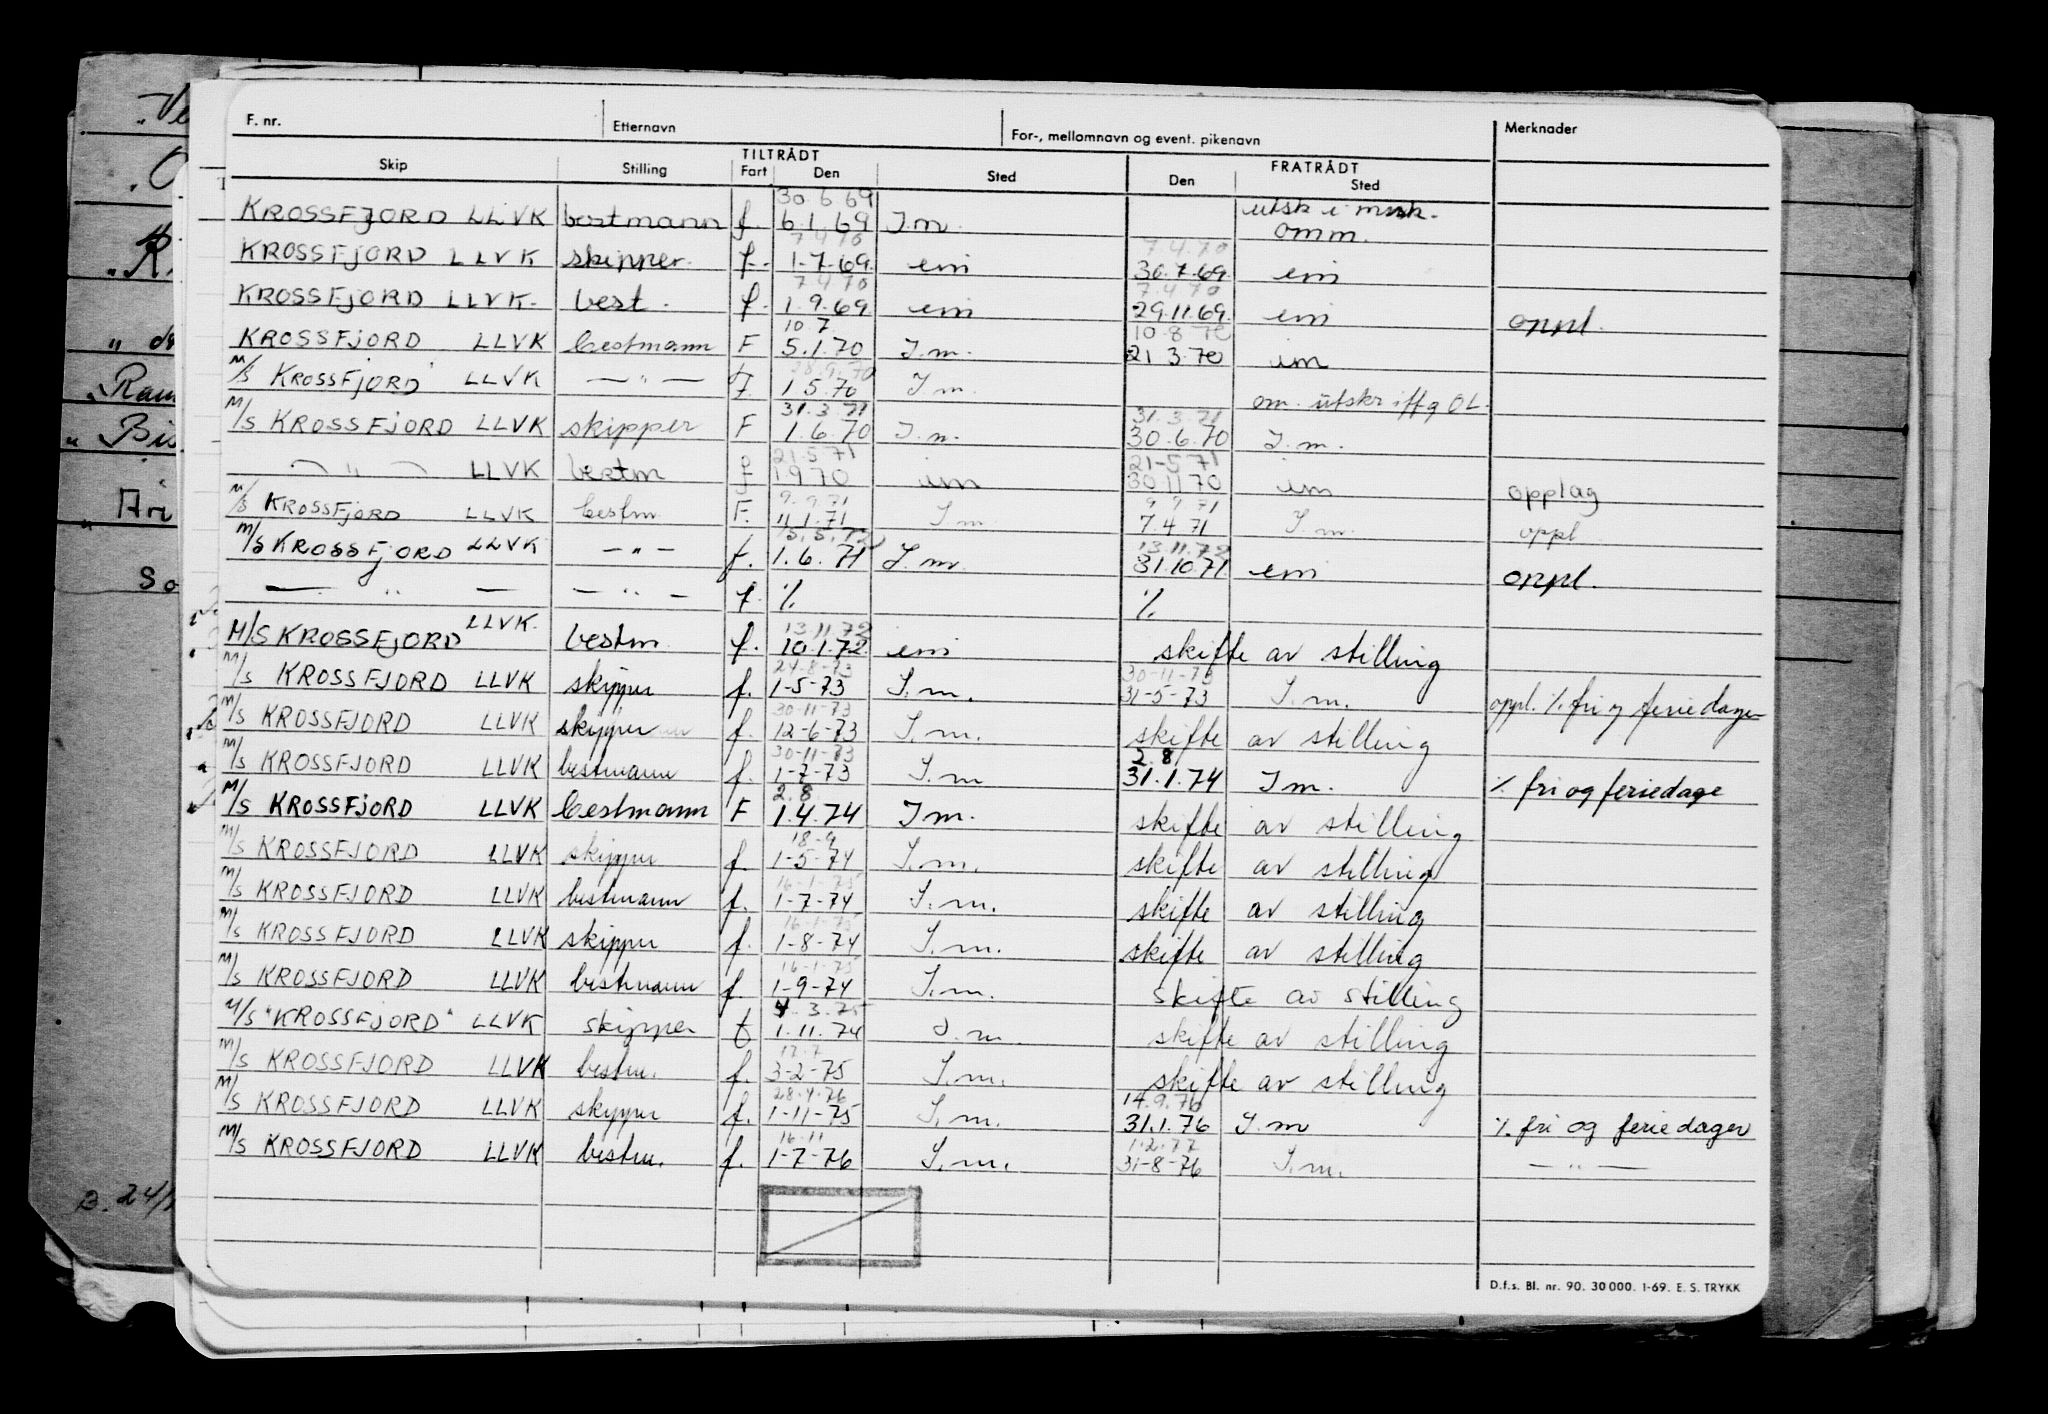 F. nr. Etternavn For-, mellomnavn og event. pikenavn Merknader
TILTRÅDT FRATRÅDT
Skip Stilling Fart Den Sted Den Sted
30.6.69 utsk i
KROSSFJORD LLVK bestmann f. 6.1.69 I.m. omm.
7.4.70 7.4.70
KROSSFJORD LLVK skipper f. 1-7-69. em 30.7.69. em
7.4.70 7.4.70
KROSSFJORD LLVK. best. f. 1.9.69 em 29.11.69. em oppl.
10.7 10.8.70
KROSSFJORD LLVK bestmann F 5.1.70 I.m. 21.3.70 im
28.9.70
M/S KROSSFJORD LLVK — " — F. 1.5.70 I m. om. utskr iflg OL.
31.3.71 31.3.71
M/S KROSSFJORD LLVK skipper F 1.6.70 I.m. 30.6.70 I.m.
21.5.71 21-5.71
— " — LLVK bestm f 1.9.70 im 30.11.70 im opplag
9.9.71 9.9.71
M/S KROSSFJORD LLVK bestm F. 11.1.71 I m 7.4.71 I.m. oppl
15.5.72 13.11.72
M/S KROSSFJORD LLVK — " — f. 1.6.71 I.m. 31.10.71. em oppl.
— " — — " — f. % %
13.11.72
M/S KROSSFJORD LLVK. bestm f. 10.1.72 em skifte av stilling
24.8-73 30-11-73
M/S KROSSFJORD LLVK skipper f. 1-5-73 I.m. 31-5-73 I.m. oppl. % fri og feriedager
30-11-73
M/S KROSSFJORD LLVK skipper f. 12-6-73 I.m. skifte av stilling
30-11-73 2.8
M/S KROSSFJORD LLVK bestmann f. 1-7-73 I.m 31.1.74 I m. % fri og feriedage
2.8
M/S KROSSFJORD LLVK bestmann F 1.4.74 I m. skifte av stilling
18-9
M/S KROSSFJORD LLVK skipper f. 1-5-74 I.m. skifte av stilling
16-1-75
M/S KROSSFJORD LLVK bestmann f. 1-7-74 I.m. skifte av stilling
16-1-75
M/S KROSSFJORD LLVK skipper f. 1-8-74 I.m. skifte av stilling
16-1-75
M/S KROSSFJORD LLVK bestmann f. 1-9-74 I.m. skifte av stilling
4.3.75
M/S "KROSSFJORD" LLVK skipper f 1.11.74 I.m. skifte av stilling
17.7
M/S KROSSFJORD LLVK bestm. f. 3-2-75 I.m. skifte av stilling
28.4.76 14.9.76
M/S KROSSFJORD LLVK skipper f. 1-11-75 I.m. 31.1.76 I.m % fri og feriedager
16-11 1.2.77
M/S KROSSFJORD LLVK bestm. f. 1-7-76 I.m. 31-8-76 I.m. — " —
D.f.s. Bl. nr. 90. 30 000. 1-69. E. S. TRYKK